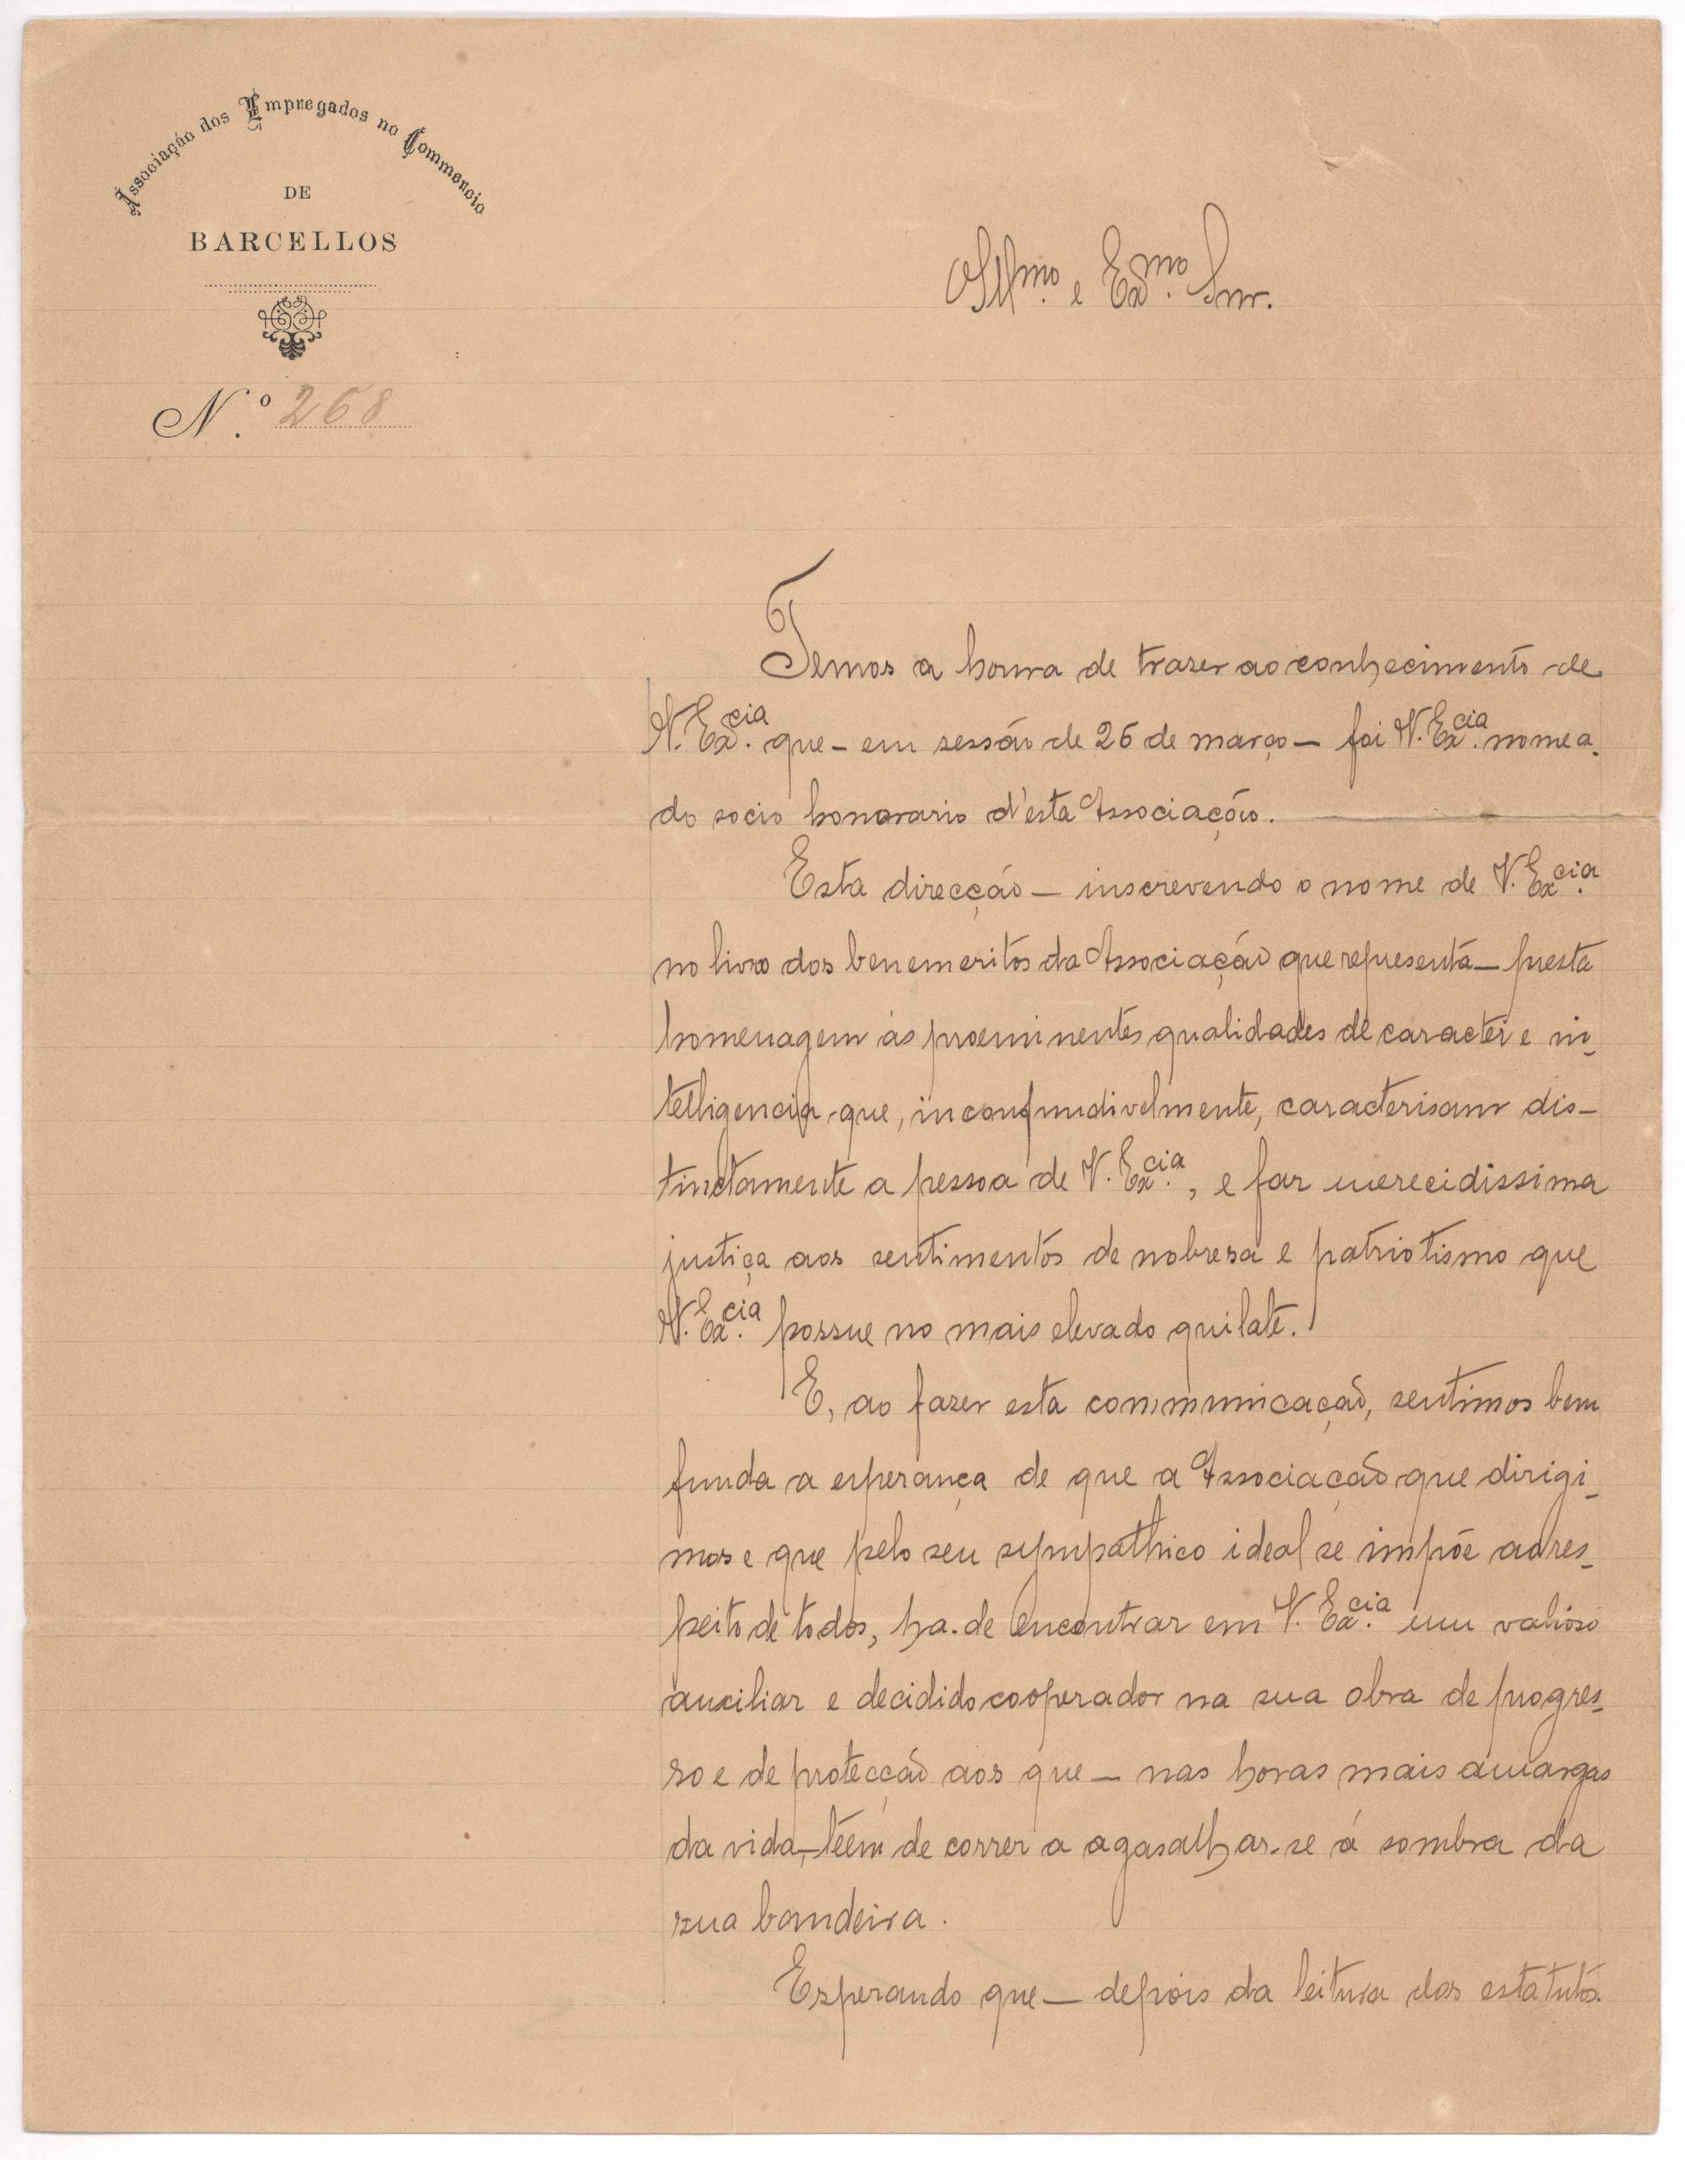 Associação dos Empregados no Commercio
DE
BARCELLOS
N.º 268
Illmo. e Exmo. Snr.
Temos a honra de traser ao conhecimento de
V. Excia. que - em sessão de 26 de março - foi V. Excia. nomea-
do socio honorario d'esta Associação.
Esta direcção - inscrevendo o nome de V. Excia.
no livro dos benemeritos da Associação que representa - presta
homenagem ás proeminentes qualidades de caracter e in-
telligencia que, inconfundivelmente, caracterisam dis-
tinctamente a pessoa de V. Excia., e faz merecidissima
justiça aos sentimentos de nobresa e patriotismo que
V. Excia. possue no mais elevado quilate.
E, ao faser esta communicação, sentimos bem
funda a esperança de que a Associação que dirigi-
mos e que pelo seu sympathico ideal se impõe ao res-
peito de todos, ha-de encontrar em V. Excia. um valioso
auxiliar e decidido cooperador na sua obra de progres-
so e de protecção aos que - nas horas mais amargas
da vida, - téem de correr a agasalhar-se á sombra da
sua bandeira.
Esperando que - depois da leitura dos estatutos